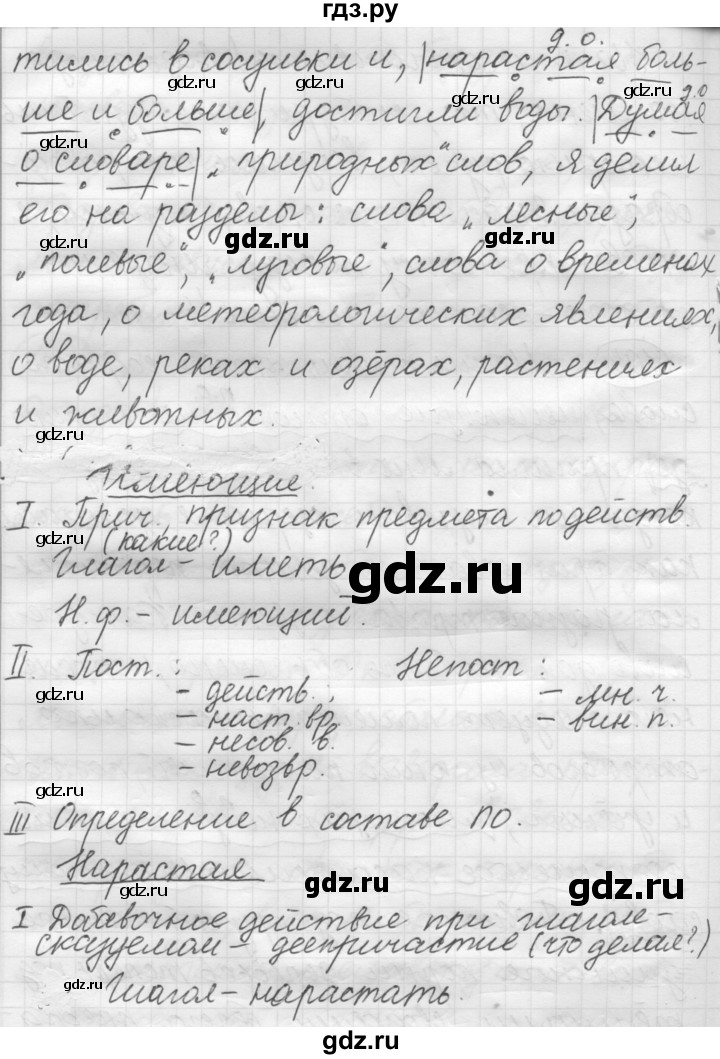 гдз.ру
д. о.
тились в сосульки и, |нарастая боль-
ше и больше|, достигли воды. |Думая
д.о
о словаре| „природных“ слов, я делил
его на разделы: слова „лесные“,
„полевые“, „луговые“, слова о временах
года, о метеорологических явлениях,
о воде, реках и озёрах, растениях
и животных.
Имеющие.
I. Прич., признак предмета по действ.
(какие?)
Глагол – иметь
Н.ф. – имеющий.
II. Пост.: Непост:
– действ., – мн. ч.
– наст. вр. – вин. п.
– несов. в.
– невозвр.
III Определение в составе ПО.
Нарастая
I Добавочное действие при глаголе-
сказуемом – деепричастие (что делая?)
Глагол – нарастать.
gdz.ru